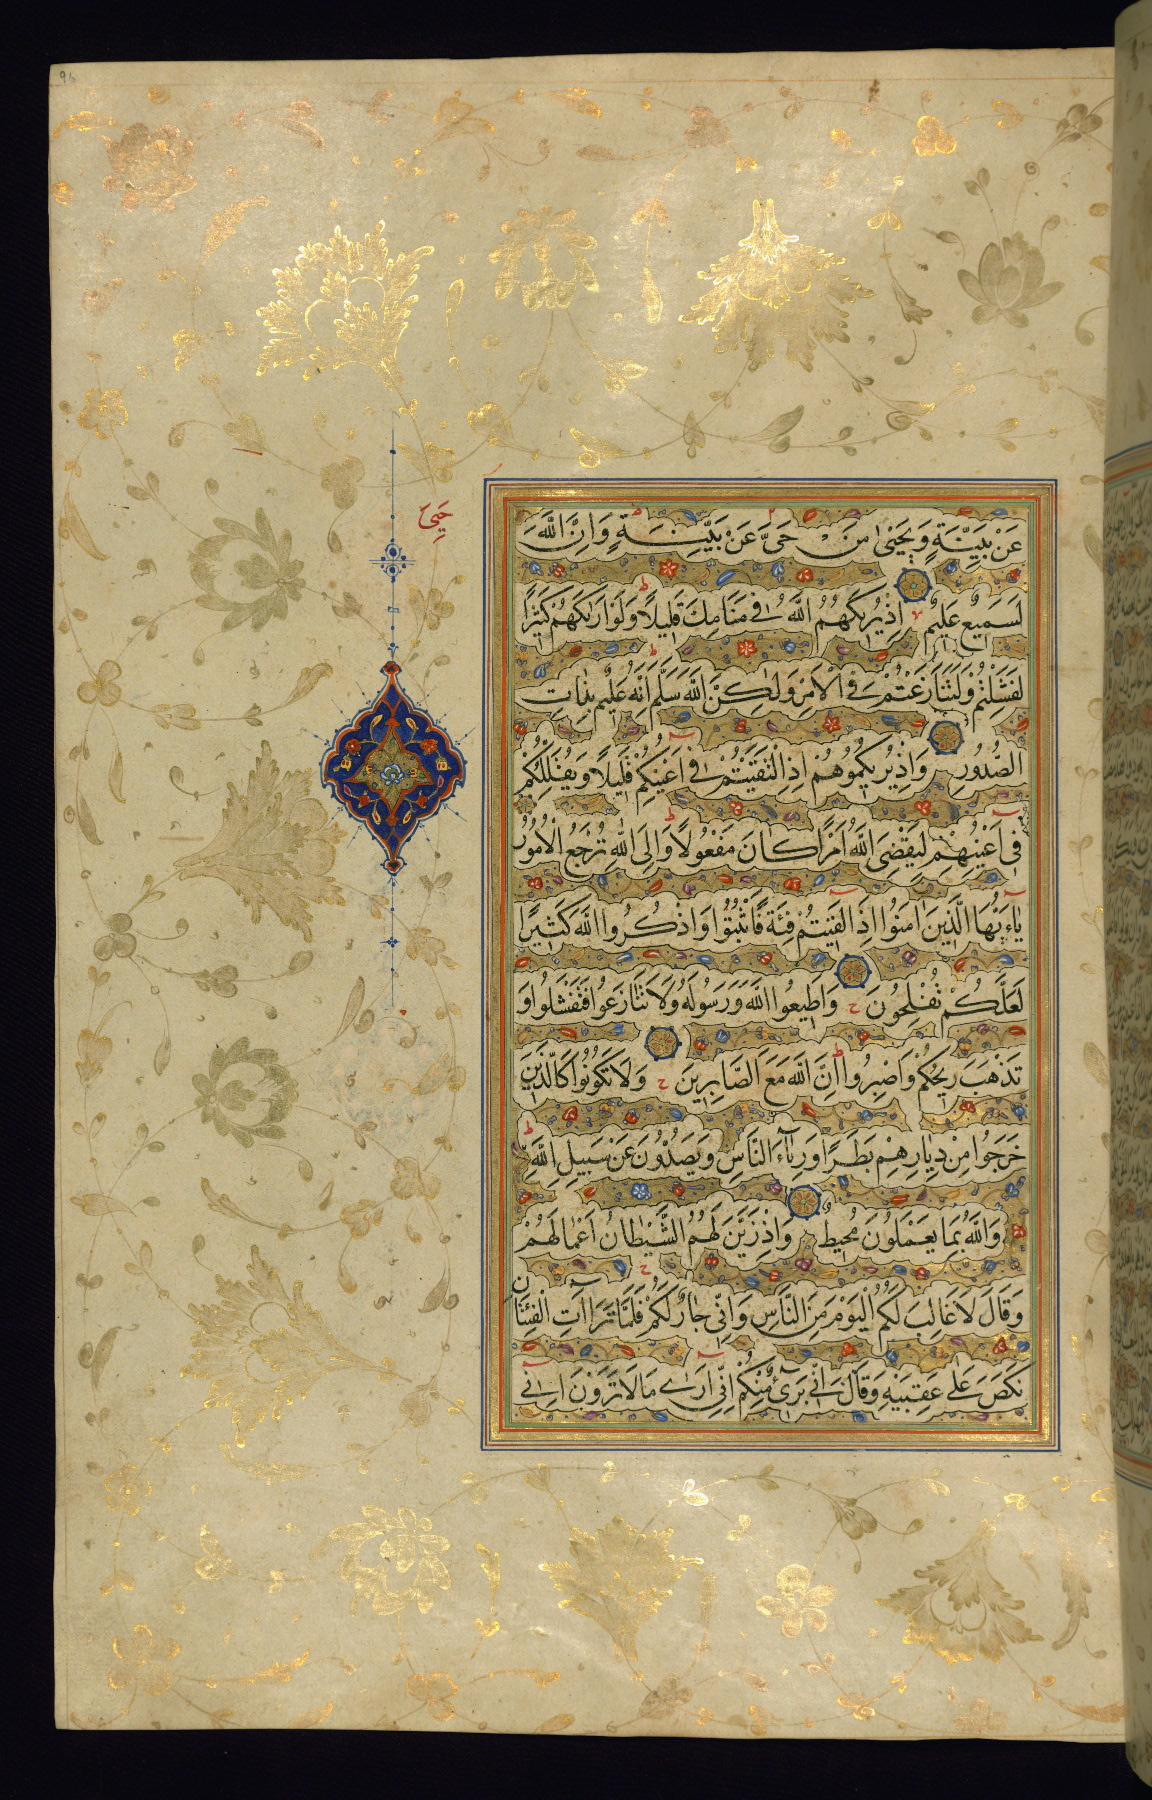 عَنْ بَيِّنَةٍ وَيَحْيٰى مَنْ حَىَّ عَنْ بَيِّنَةٍ وَاِنَّ اللّٰهَ
لَسَمِيعٌ عَلِيمٌ اِذْ يُرِيكَهُمُ اللّٰهُ فِى مَنَامِكَ قَلِيلًا وَلَوْ اَرٰيكَهُمْ كَثِيرًا
لَفَشِلْتُمْ وَلَتَنَازَعْتُمْ فِى الْاَمْرِ وَلٰكِنَّ اللّٰهَ سَلَّمَ اِنَّهُ عَلِيمٌ بِذَاتِ
الصُّدُورِ وَاِذْ يُرِيكُمُوهُمْ اِذِ الْتَقَيْتُمْ فِى اَعْيُنِكُمْ قَلِيلًا وَيُقَلِّلُكُمْ
فِى اَعْيُنِهِمْ لِيَقْضِىَ اللّٰهُ اَمْرًا كَانَ مَفْعُولًا وَاِلَى اللّٰهِ تُرْجَعُ الْاُمُورُ
يٰاءَيُّهَا الَّذِينَ اٰمَنُوا اِذَا لَقِيتُمْ فِئَةً فَاثْبُتُوا وَاذْكُرُوا اللّٰهَ كَثِيرًا
لَعَلَّكُمْ تُفْلِحُونَ وَاَطِيعُوا اللّٰهَ وَرَسُولَهُ وَلَا تَنَازَعُوا فَتَفْشَلُوا وَ
تَذْهَبَ رِيحُكُمْ وَاصْبِرُوا اِنَّ اللّٰهَ مَعَ الصَّابِرِينَ وَلَا تَكُونُوا كَالَّذِينَ
خَرَجُوا مِنْ دِيَارِهِمْ بَطَرًا وَرِئَاءَ النَّاسِ وَيَصُدُّونَ عَنْ سَبِيلِ اللّٰهِ
وَاللّٰهُ بِمَا يَعْمَلُونَ مُحِيطٌ وَاِذْ زَيَّنَ لَهُمُ الشَّيْطَانُ اَعْمَالَهُمْ
وَقَالَ لَا غَالِبَ لَكُمُ الْيَوْمَ مِنَ النَّاسِ وَاِنِّى جَارٌ لَكُمْ فَلَمَّا تَرَاآتِ الْفِئَتَانِ
نَكَصَ عَلٰى عَقِبَيْهِ وَقَالَ اِنِّى بَرِىٓءٌ مِنْكُمْ اِنِّى اَرٰى مَا لَا تَرَوْنَ اِنِّى